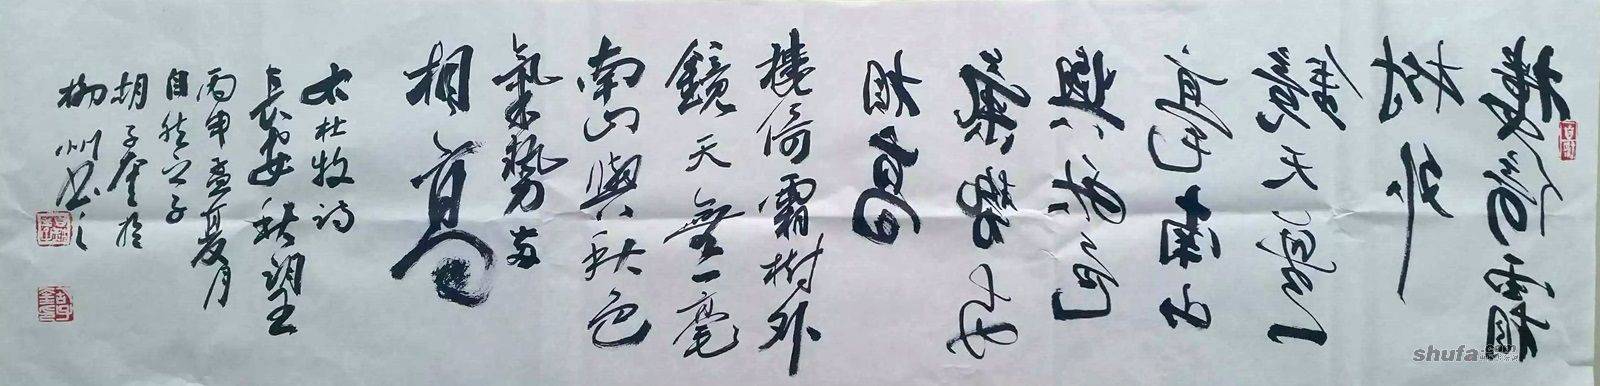 樓倚霜
樹外
鏡天無一
毫南山
與秋色
氣勢兩
相高
樓倚霜樹外
鏡天無一毫
南山與秋色
氣勢兩
相高
杜牧詩
長安秋望
丙申孟夏月
自然之子
胡子於
柳州書之
shufa